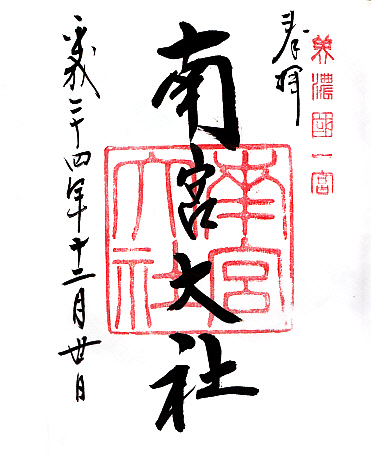 美濃國一宮
奉拝
南宮大社
南宮大社
平成二十四年十二月廿日